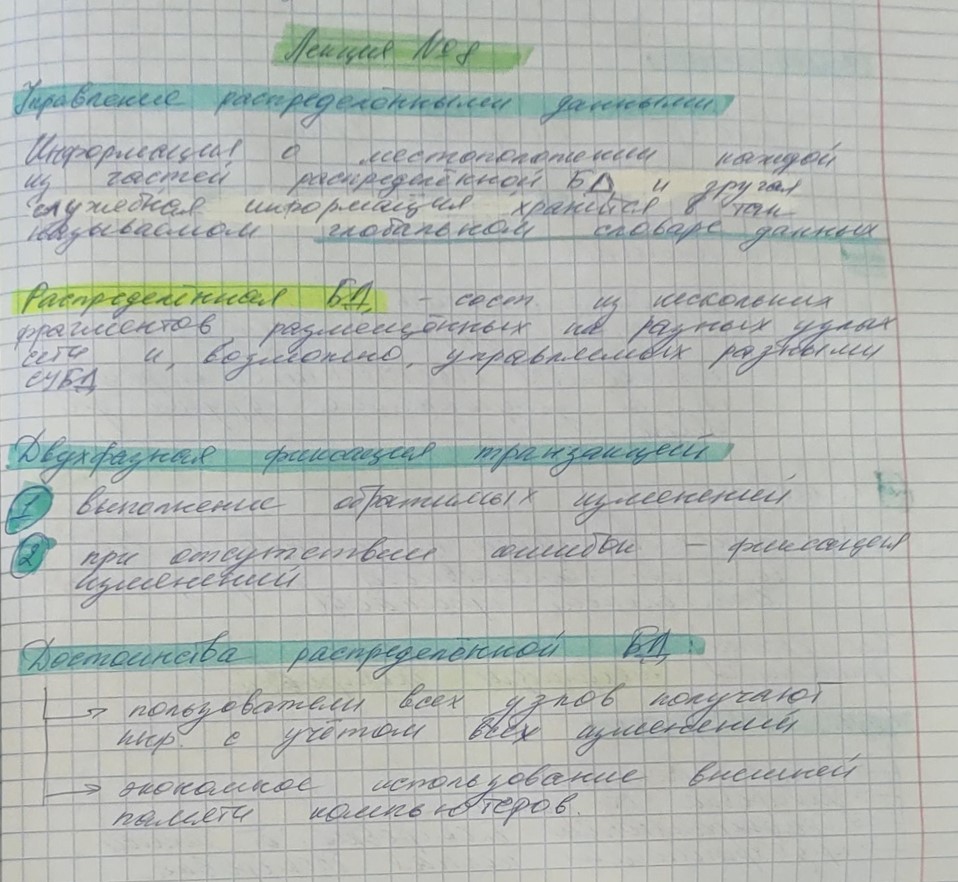 Лекция №8
Управление распределёнными данными
Информация о местоположении каждой
из частей распределённой БД и другая
служебная информация хранится в так
называемом глобальном словаре данных
Распределённая БД - сост. из нескольких
фрагментов, размещённых на разных узлах
сети и, возможно, управляемых разными
СУБД
Двухфазная фиксация транзакций
1 выполнение обратимых изменений
2 при отсутствии ошибки - фиксация
изменений
Достоинства распределённой БД:
→ пользователи всех узлов получают
с учётом всех изменений
→ экономное использование внешней
памяти компьютеров.